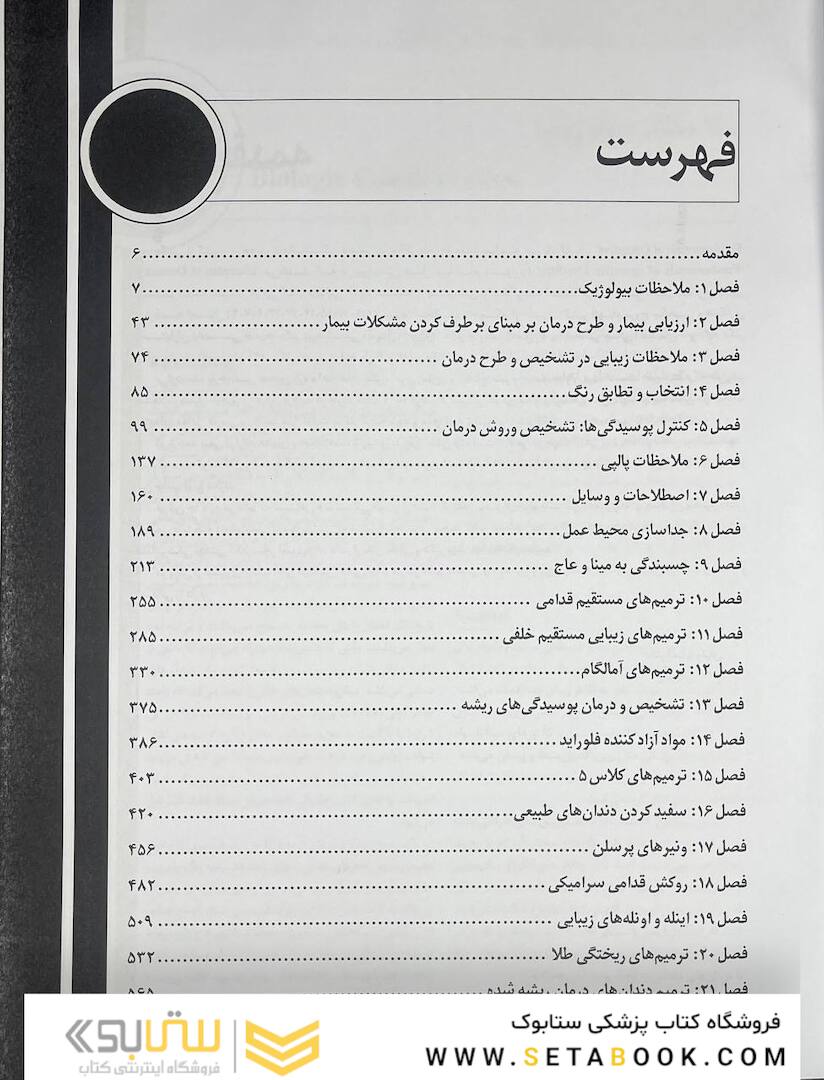 فهرست
مقدمه ۶
فصل ۱: ملاحظات بیولوژیک ۷
فصل ۲: ارزیابی بیمار و طرح درمان بر مبنای برطرف کردن مشکلات بیمار ۴۳
فصل ۳: ملاحظات زیبایی در تشخیص و طرح درمان ۷۴
فصل ۴: انتخاب و تطابق رنگ ۸۵
فصل ۵: کنترل پوسیدگی‌ها: تشخیص وروش درمان ۹۹
فصل ۶: ملاحظات پالپی ۱۳۷
فصل ۷: اصطلاحات و وسایل ۱۶۰
فصل ۸: جداسازی محیط عمل ۱۸۹
فصل ۹: چسبندگی به مینا و عاج ۲۱۳
فصل ۱۰: ترمیم‌های مستقیم قدامی ۲۵۵
فصل ۱۱: ترمیم‌های زیبایی مستقیم خلفی ۲۸۵
فصل ۱۲: ترمیم‌های آمالگام ۳۳۰
فصل ۱۳: تشخیص و درمان پوسیدگی‌های ریشه ۳۷۵
فصل ۱۴: مواد آزاد کننده فلوراید ۳۸۶
فصل ۱۵: ترمیم‌های کلاس ۵ ۴۰۳
فصل ۱۶: سفید کردن دندان‌های طبیعی ۴۲۰
فصل ۱۷: ونیرهای پرسلن ۴۵۶
فصل ۱۸: روکش قدامی سرامیکی ۴۸۲
فصل ۱۹: اینله و اونله‌های زیبایی ۵۰۹
فصل ۲۰: ترمیم‌های ریختگی طلا ۵۳۲
فصل ۲۱: ترمیم دندان‌های درمان ریشه شده ۵۶۵
فروشگاه کتاب پزشکی ستابوک
WWW.SETABOOK.COM
ستابوک
فروشگاه اینترنتی کتاب